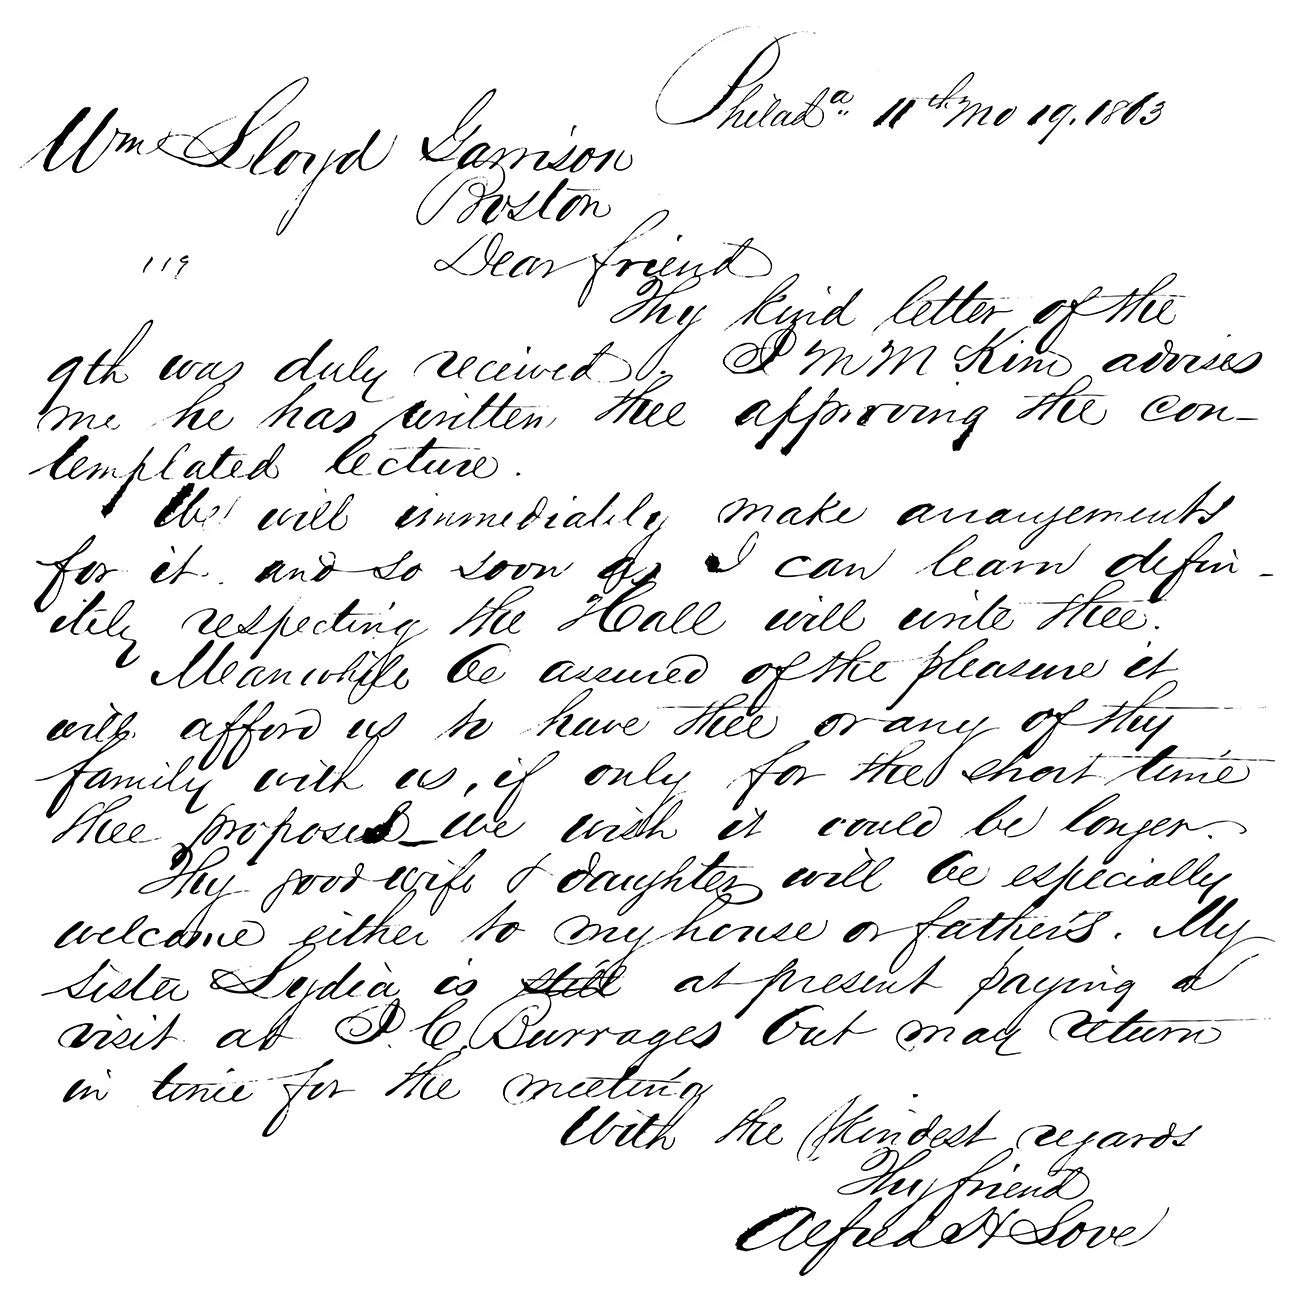 Philada. 11th Mo 19. 1863
Wm Lloyd Garrison
Boston
119
Dear friend
Thy kind letter of the
9th was duly received. J M McKim advises
me he has written thee approving the con-
templated lecture.
We will immediately make arrangements
for it. and so soon as I can learn defin-
itely respecting the Hall will write thee.
Meanwhile be assured of the pleasure it
will afford us to have thee or any of thy
family with us, if only for the short time
thee proposed_ we wish it could be longer.
Thy good wife & daughter will be especially
welcome either to my house or father's. My
sister Lydia is still at present paying a
visit at J. C. Burrages but may return
in time for the meeting
With the kindest regards
Thy friend
Alfred H Love